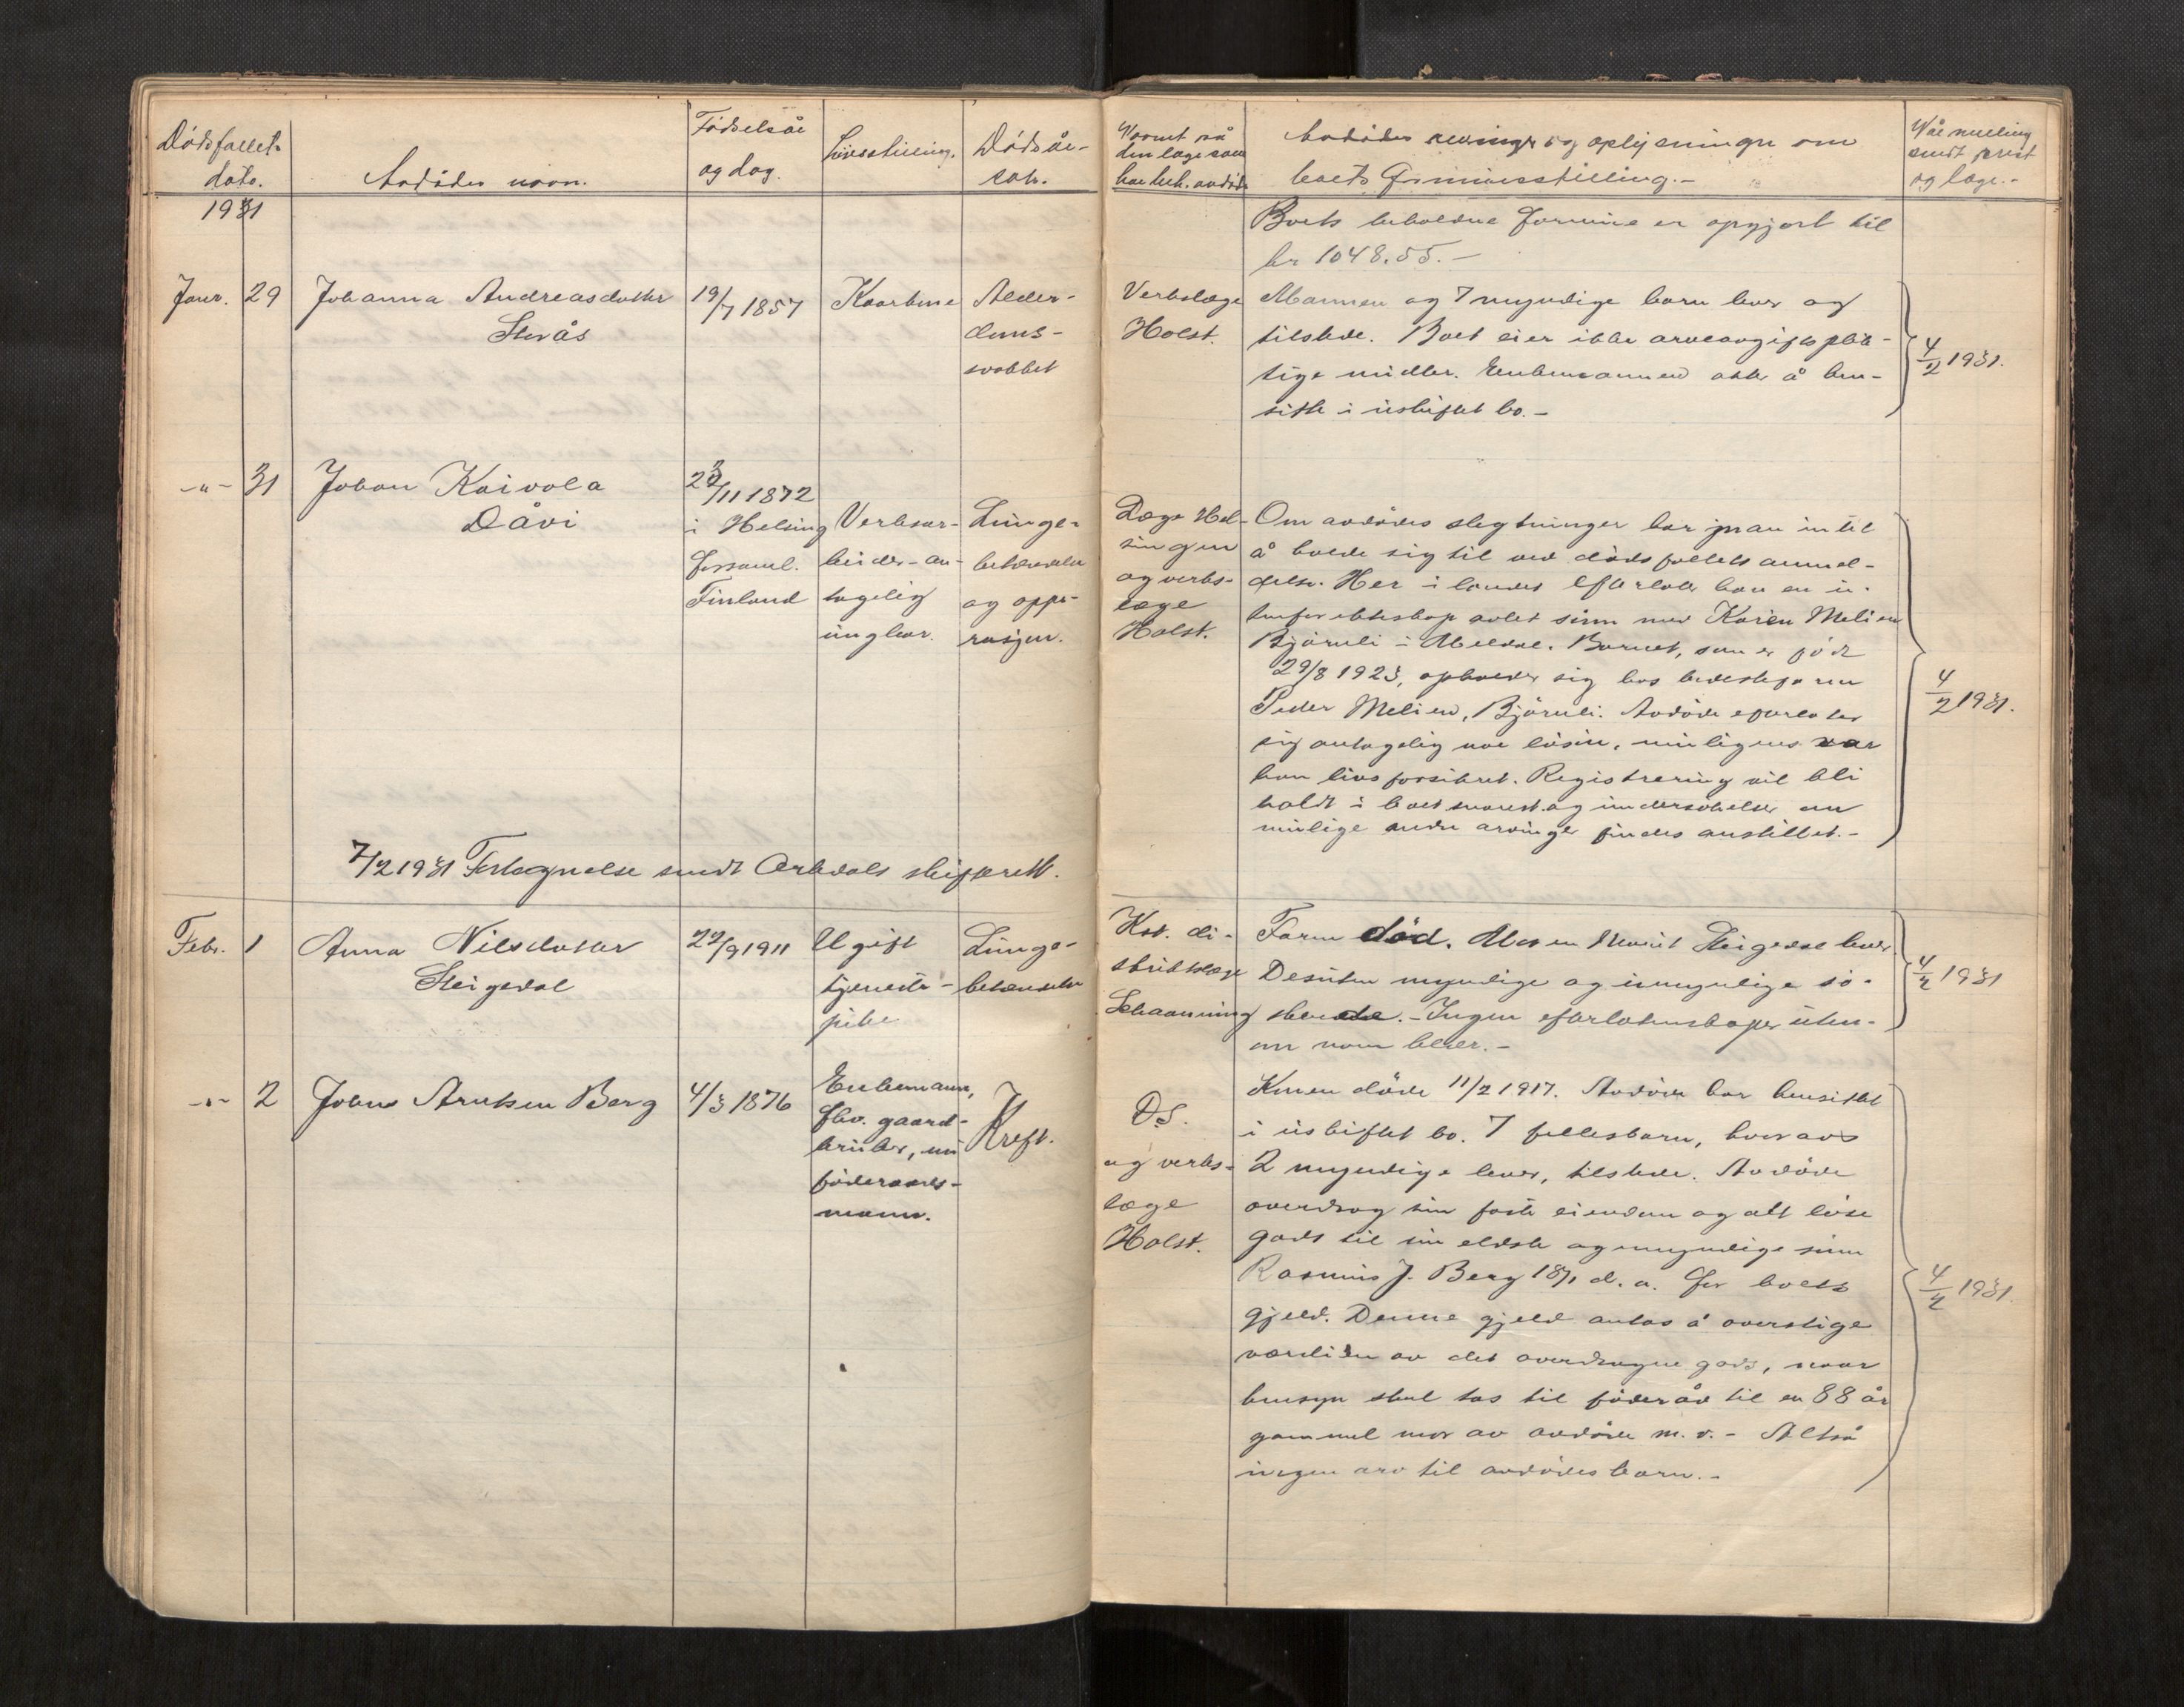 Dødsfallets
dato.
1931
Avdødes navn.
Fødselsår
og dag.
Livsstilling.
Dødsår-
sak.
Navnet på
den læge som
har beh. avdøde
Avdødes arvinger og oplysninger om
boets formuesstilling.-
Når melling
sendt prest
og læge.-
Boets beholdne formue er opgjort til
kr 1048.55.-
Janr. 29
Johanna Andreasdatter
Sterås
19/7 1857
Kaarkone
Alder-
doms-
svakhet
Verkslæge
Holst.
Mannen og 7 myndige barn lever og
tilstede. Boet eier ikke arveavgiftsplik-
tige midler. Enkemannen akter å hen-
sitte i uskiftet bo.-
4/2 1931.
-"- 31
Johan Koivola
Dåvi
23/11 1872
i Helsing
forsaml.
Finland
Verksar-
beider - an-
tagelig
ungkar.
Lunge-
betændelse
og oppe-
rasjon.
Læge Hel-
singen
og verks-
læge
Holst.
Om avdødes slegtninger har man intet
å holde sig til ved dødsfallets anmel-
delse. Her i landet efterlater han en u-
tenfor ekteskap avlet sønn med Karen Melien
Bjørnli i Meldal. Barnet, som er født
29/8 1923, opholder sig hos besteforeldrene
Peder Melien, Bjørnli. Avdøde efterlater
sig antagelig noe løsøre, muligens var
han livsforsikret. Registrering vil bli
holdt i boet snarest og undersøkelse om
mulige andre arvinger findes anstillet.-
4/2 1931.
7/2 1931 Fortegnelse sendt Orkdals skifterett.
Febr. 1
Anna Nilsdatter
Steigedal
22/9 1911
Ugift
tjeneste-
pike
Lunge-
betændelse
Kst. di-
striktslæge
Schaanning
Faren død. Moren Marit Steigedal lever.
Desuten myndige og umyndige sø-
skende.- Ingen efterlatenskaper uten-
om noen klær.-
4/2 1931
-"- 2
Johns Arntsen Berg
4/3 1876
Enkemann,
fhv. gaard-
bruker, nu
føderaads-
mann.
Kreft.
DS.
og verks-
læge
Holst.
Konen døde 11/2 1917. Avdøde har hensittet
i uskiftet bo. 7 fellesbarn, hvorav
2 myndige lever, tilstede. Avdøde
overdrog sin faste eiendom og alt løse
gods til sin eldste og myndige sønn
Rasmus J. Berg 18/1 d. a. for boets
gjeld. Denne gjeld antas å overstige
verdien av det overdragne gods, naar
hensyn skal tas til føderåd til en 88 år
gammel mor av avdøde m. v. - Altså
ingen arv til avdødes barn.-
4/2 1931.